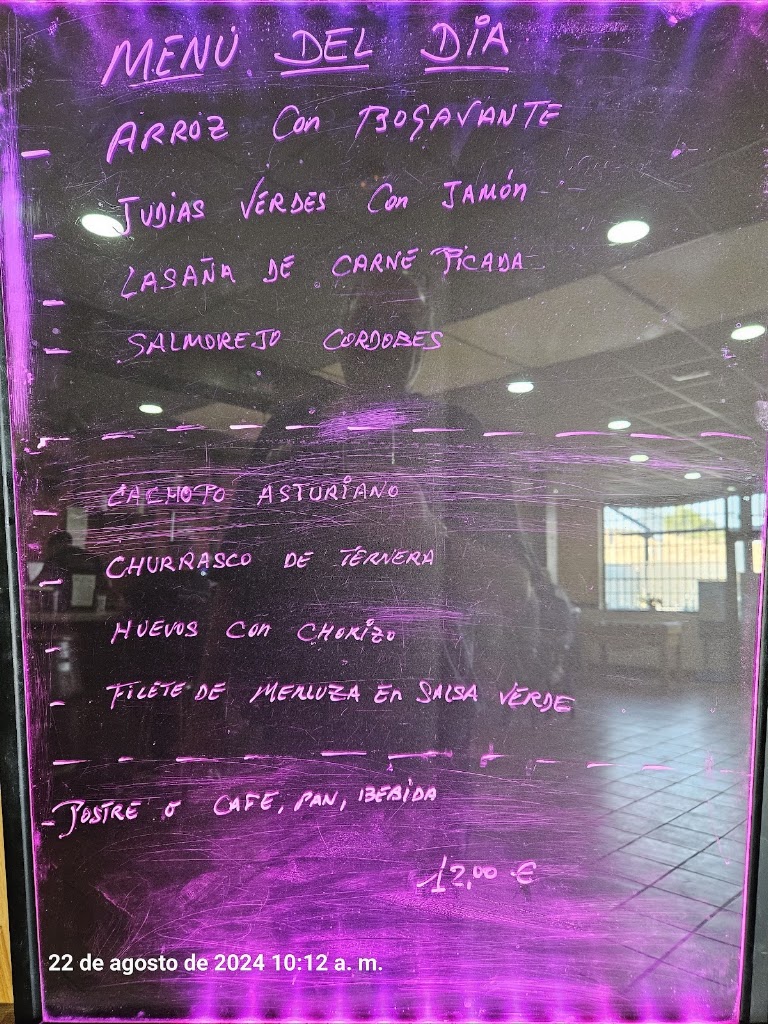 MENÚ DEL DÍA
- ARROZ con BOGAVANTE
- JUDIAS VERDES Con JAMón
- LASAÑA DE CARNE PICADA
- SALMOREJO CORDOBES
- CACHOPO ASTURIANO
- CHURRASCO DE TERNERA
- HUEVOS con CHORIZO
- FILETE DE MERLUZA En SALSA VERDE
- POSTRE o CAFE, PAN, BEBIDA
12,00 €
22 de agosto de 2024 10:12 a. m.